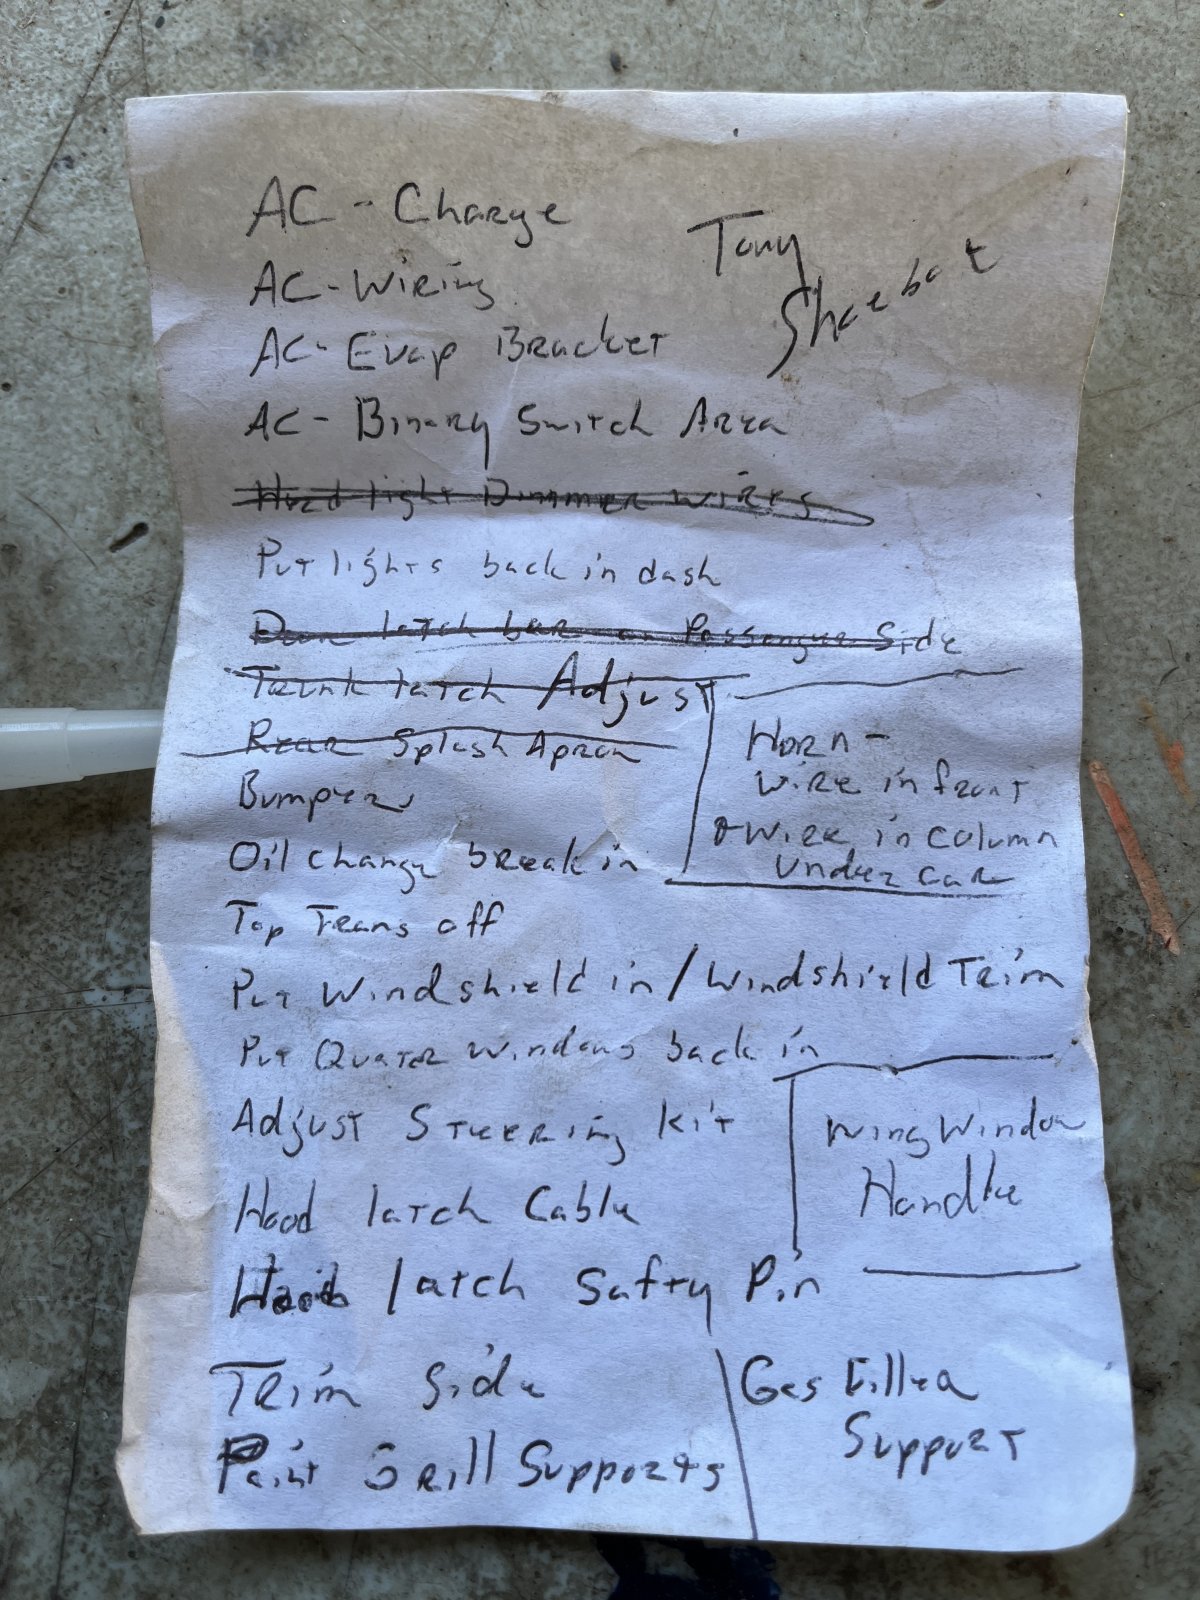 AC - Charge
Tony
Shoebat
AC - Wiring
AC - Evap Bracket
AC - Binary Switch Area
Head light Dimmer wires
Put lights back in dash
Door latch bar on Passenger Side
Trunk latch Adjust
Rear Splash Apron
Horn -
wire in front
wire in column
under car
Bumper
Oil change break in
Top Trans off
Put Windshield in / Windshield Trim
Put Quater windows back in
Adjust Steering Kit
Wing Window
Handle
Hood latch Cable
Hood latch Safty Pin
Trim Side
Gas Filler
Support
Paint Grill Supports